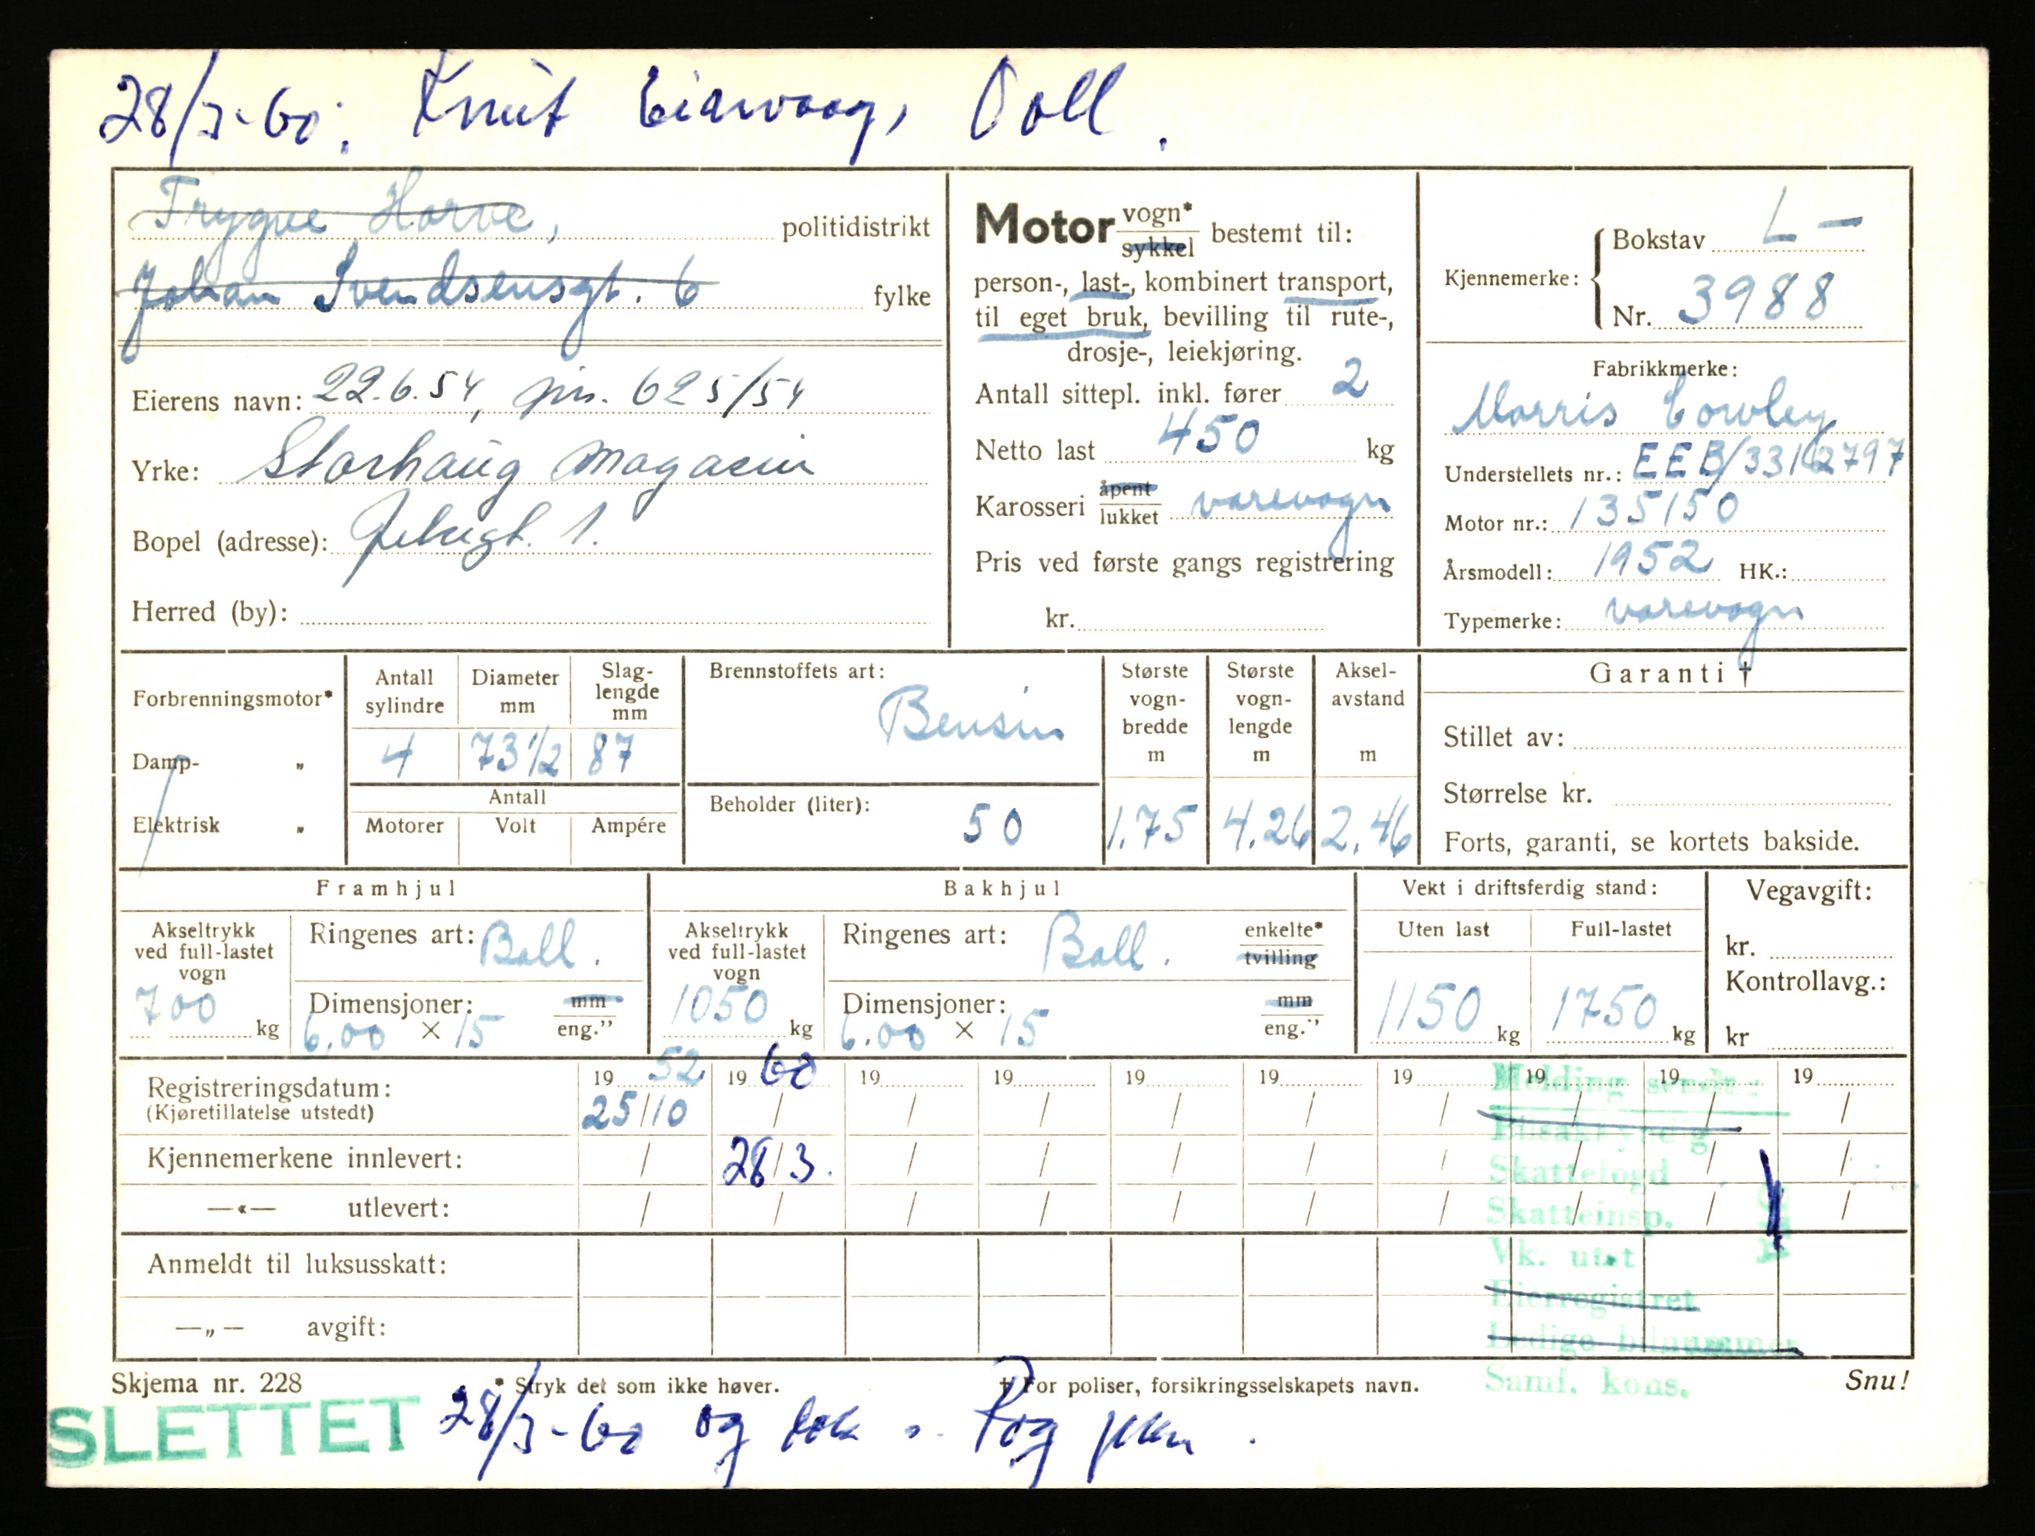 28/3-60. Knut Eidwoog, Doll.
Trygve Horve, politidistrikt
Johan Svendsensgt. 6 fylke
Eierens navn: 22.6.54, jnr. 625/54
Yrke: Storhaug Magasin
Bopel (adresse): 1.
Herred (by):
Motor vogn* sykkel bestemt til:
person-, last-, kombinert transport,
til eget bruk, bevilling til rute-,
drosje-, leiekjøring.
Antall sittepl. inkl. fører 2
Netto last 450 kg
Karosseri åpent lukket varevogn
Pris ved første gangs registrering
kr.
Kjennemerke: Bokstav L-
Nr. 3988
Fabrikkmerke:
Morris Cowley
Understellets nr.: EEB/33/62797
Motor nr.: 135150
Årsmodell: 1952 HK.:
Typemerke: varevogn
Forbrenningsmotor*
Damp- „
Elektrisk „
Antall sylindre 4
Diameter mm 73 1/2
Slag-lengde mm 87
Antall
Motorer Volt Ampére
Brennstoffets art: Bensin
Beholder (liter): 50
Største vogn-bredde m 1.75
Største vogn-lengde m 4.26
Aksel-avstand m 2.46
Garanti †
Stillet av:
Størrelse kr.
Forts, garanti, se kortets bakside.
Framhjul
Akseltrykk ved full-lastet vogn 700 kg
Ringenes art: Ball.
Dimensjoner: 6.00 × 15 mm eng.”
Bakhjul
Akseltrykk ved full-lastet vogn 1050 kg
Ringenes art: Ball. enkelte* tvilling
Dimensjoner: 6.00 × 15 mm eng.”
Vekt i driftsferdig stand:
Uten last 1150 kg
Full-lastet 1750 kg
Vegavgift:
kr.
Kontrollavg.:
kr
Registreringsdatum: 19 52 19 60 19 19 19 19 19 19 19 19
(Kjøretillatelse utstedt) 25/10 / / / / / / / / /
Kjennemerkene innlevert: / 28/3. / / / / / / / /
—«— utlevert: / / / / / / / / / /
Anmeldt til luksusskatt:
—„— avgift:
Melding sendt:
Skattefogd
Skatteinsp.
Vk. utst
Eierregistret
Ledige bilnummer
Samf. kons.
Skjema nr. 228 * Stryk det som ikke høver. † For poliser, forsikringsselskapets navn. Snu!
SLETTET 28/3-60 og